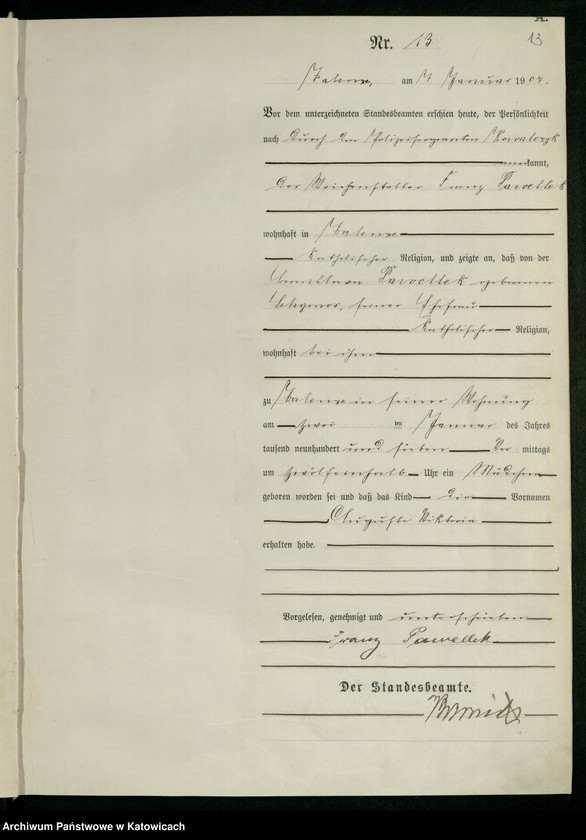 A.
Nr. 13
13
am 7 Januar 1907.
Vor dem unterzeichneten Standesbeamten erschien heute, der Persönlichkeit
nach durch den Polizeisergeanten Kowalczyk
kannt,
der Weichensteller Franz Pawellek
wohnhaft in
katholischer Religion, und zeigte an, daß von der
Pawellek geborenen
seiner Ehefrau
katholischer Religion,
wohnhaft bei ihm
zu in seiner Wohnung
am zwei im Januar des Jahres
tausend neunhundert und sieben Vor mittags
um zwölfeinhalb Uhr ein Mädchen
geboren worden sei und daß das Kind die Vornamen
Auguste Viktoria
erhalten habe.
Vorgelesen, genehmigt und unterschrieben
Franz Pawellek
Der Standesbeamte.
Archiwum Państwowe w Katowicach